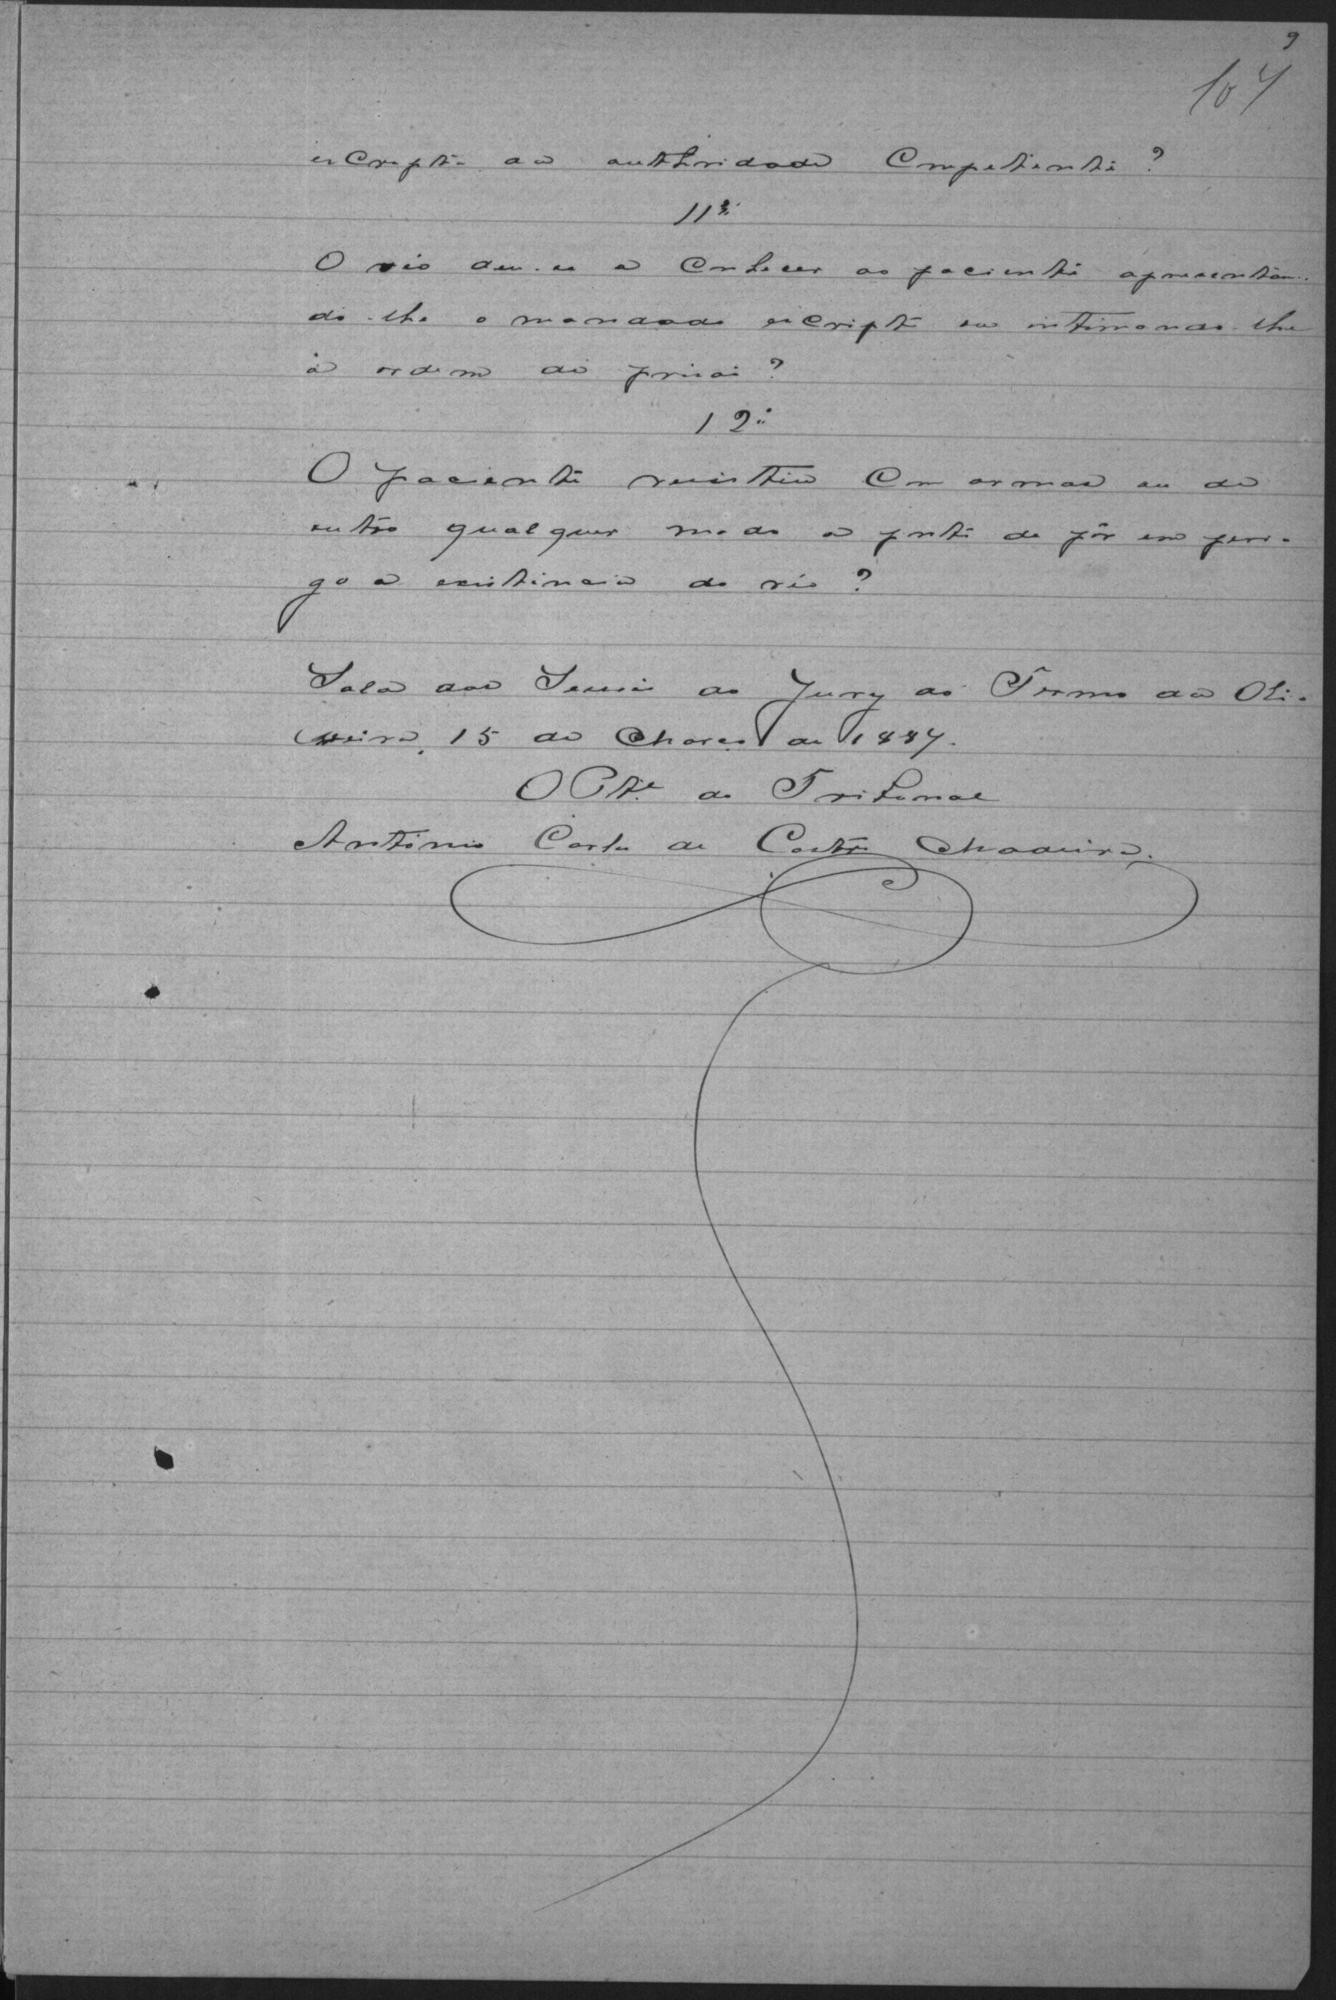 9
107
escripto da authoridade Competente?
11º
O réo deu-se a Conhecer ao paciente apresentan-
do-lhe o mandado escripto ou intimando-lhe
a ordem de prisão?
12º
O paciente resistiu Com armas ou de
outro qualquer modo a ponto de pôr em peri-
go a existencia do réo?
Sala das Sessões do Jury do Termo da Oli-
veira, 15 de Março de 1887.
O Pte. do Tribunal
Antonio Carlos de Castro Madeira.